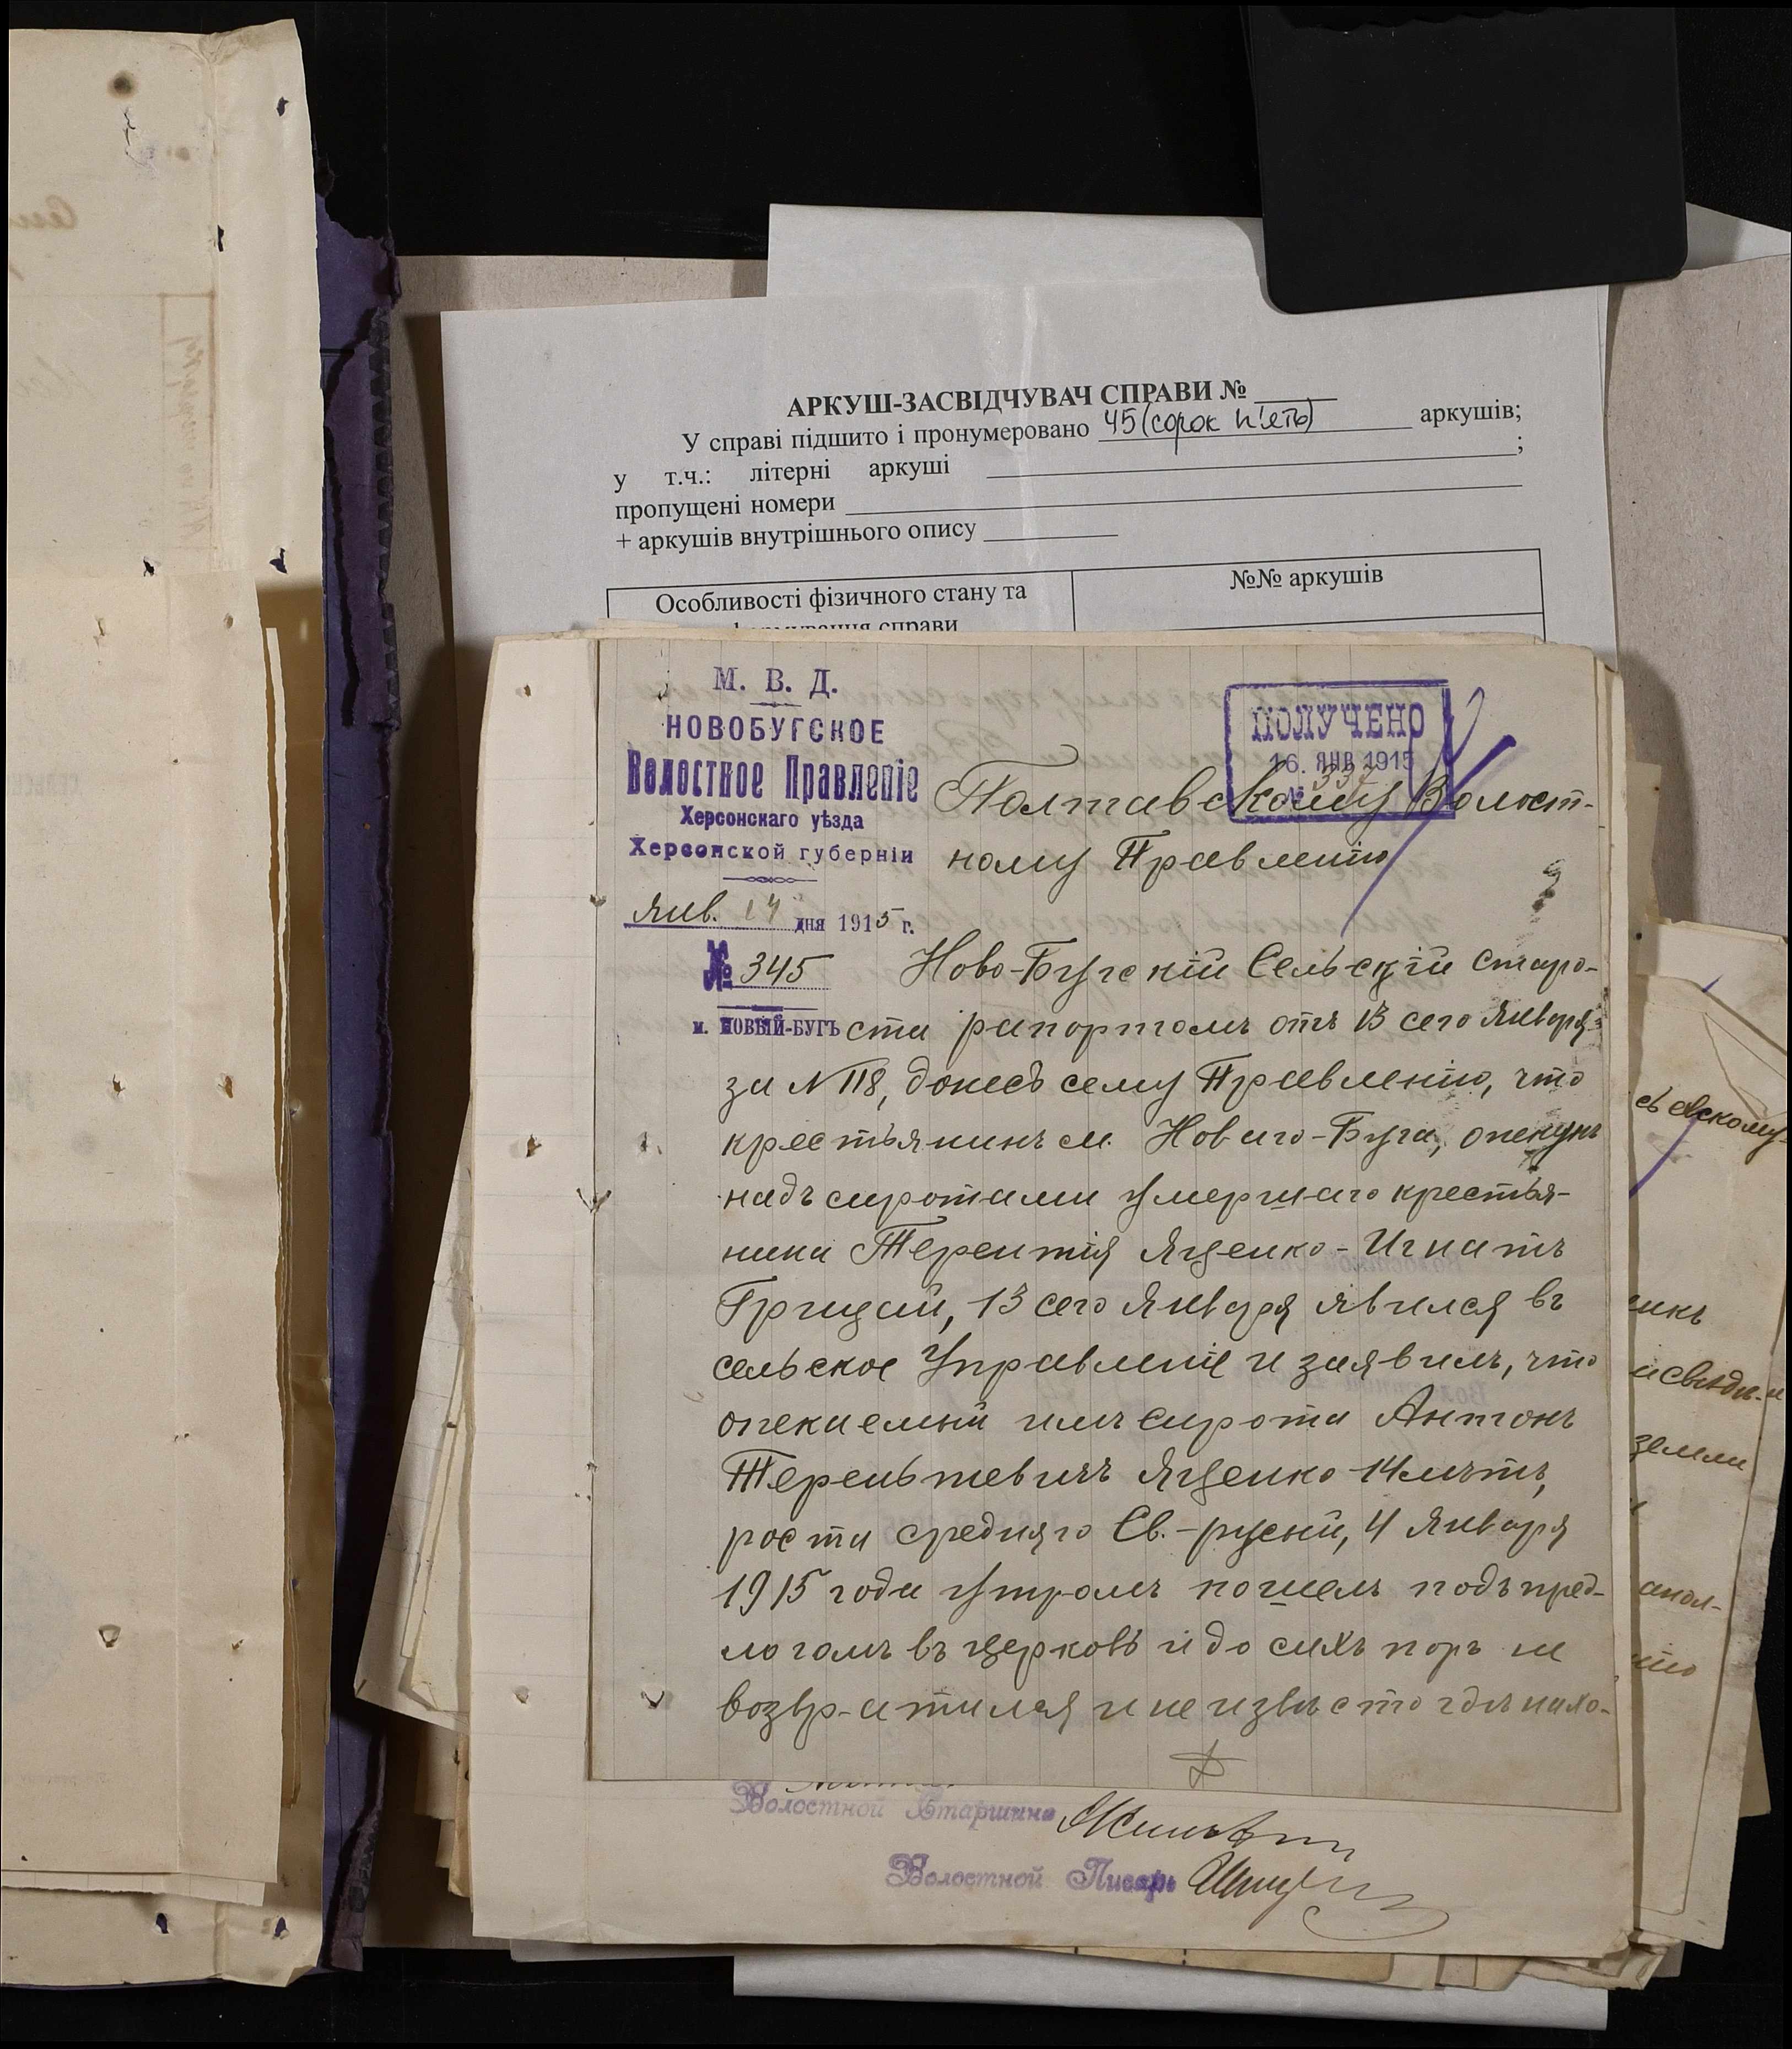 АРКУШ-ЗАСВІДЧУВАЧ СПРАВИ № ______
У справі підшито і пронумеровано 45 (сорок п'ять) аркушів;
у т.ч.: літерні аркуші ______;
пропущені номери ______
+ аркушів внутрішнього опису ______
Особливості фізичного стану та
№№ аркушів
справи
М. В. Д.
НОВОБУГСКОЕ
Волостное Правленіе
Херсонскаго уѣзда
Херсонской губерніи
Янв. 14 дня 1915 г.
№ 345
м. НОВЫЙ-БУГЪ
ПОЛУЧЕНО
16. ЯНВ 1915
№ 337
Полтавскому Волост-
ному Правленію
Ново-Бугскій Сельскій старо-
ста рапортомъ отъ 13 сего Января
за N 118, донесъ сему Правленію, что
крестьянинъ м. Новаго-Буга, опекунъ
надъ сиротами умершаго крестья-
нина Терентія Яценко - Игнатъ
Грицай, 13 сего Января явился въ
сельское Управленіе и заявилъ, что
опекаемый имъ сирота Антонъ
Терентьевичъ Яценко 14 лѣтъ,
роста средняго Св.-русый, 4 Января
1915 года утромъ пошелъ подъ пред-
логомъ въ церковь и до сихъ поръ не
возвратился и не извѣстно гдѣ нахо-
Волостной Старшина
Волостной Писарь
земли